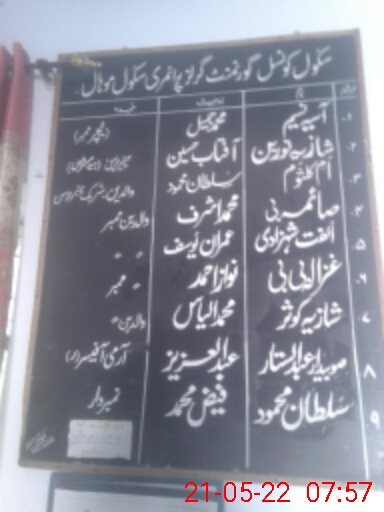 سکول کونسل گورنمنٹ گرلز پرائمری سکول موہال
نام ولدیت عہدہ
۱۔ آسیہ نسیم محمد جمیل (ٹیچر ممبر)
۲ شازیہ نورین آفتاب حسین
۳۔ ام کلثوم سلطان محمود والدین
۴۔ صائمہ بی بی محمد اشرف والدین ممبر
۵۔ الفت شہزادی عمران یوسف " "
۶۔ غزالہ بی بی نواز احمد " ممبر
۷ شازیہ کوثر محمد الیاس والدین "
۸ صوبیدار عبدالستار عبدالعزیز آرمی آفیسر (ر)
۹ سلطان محمود فیض محمد نمبردار
21-05-22 07:57